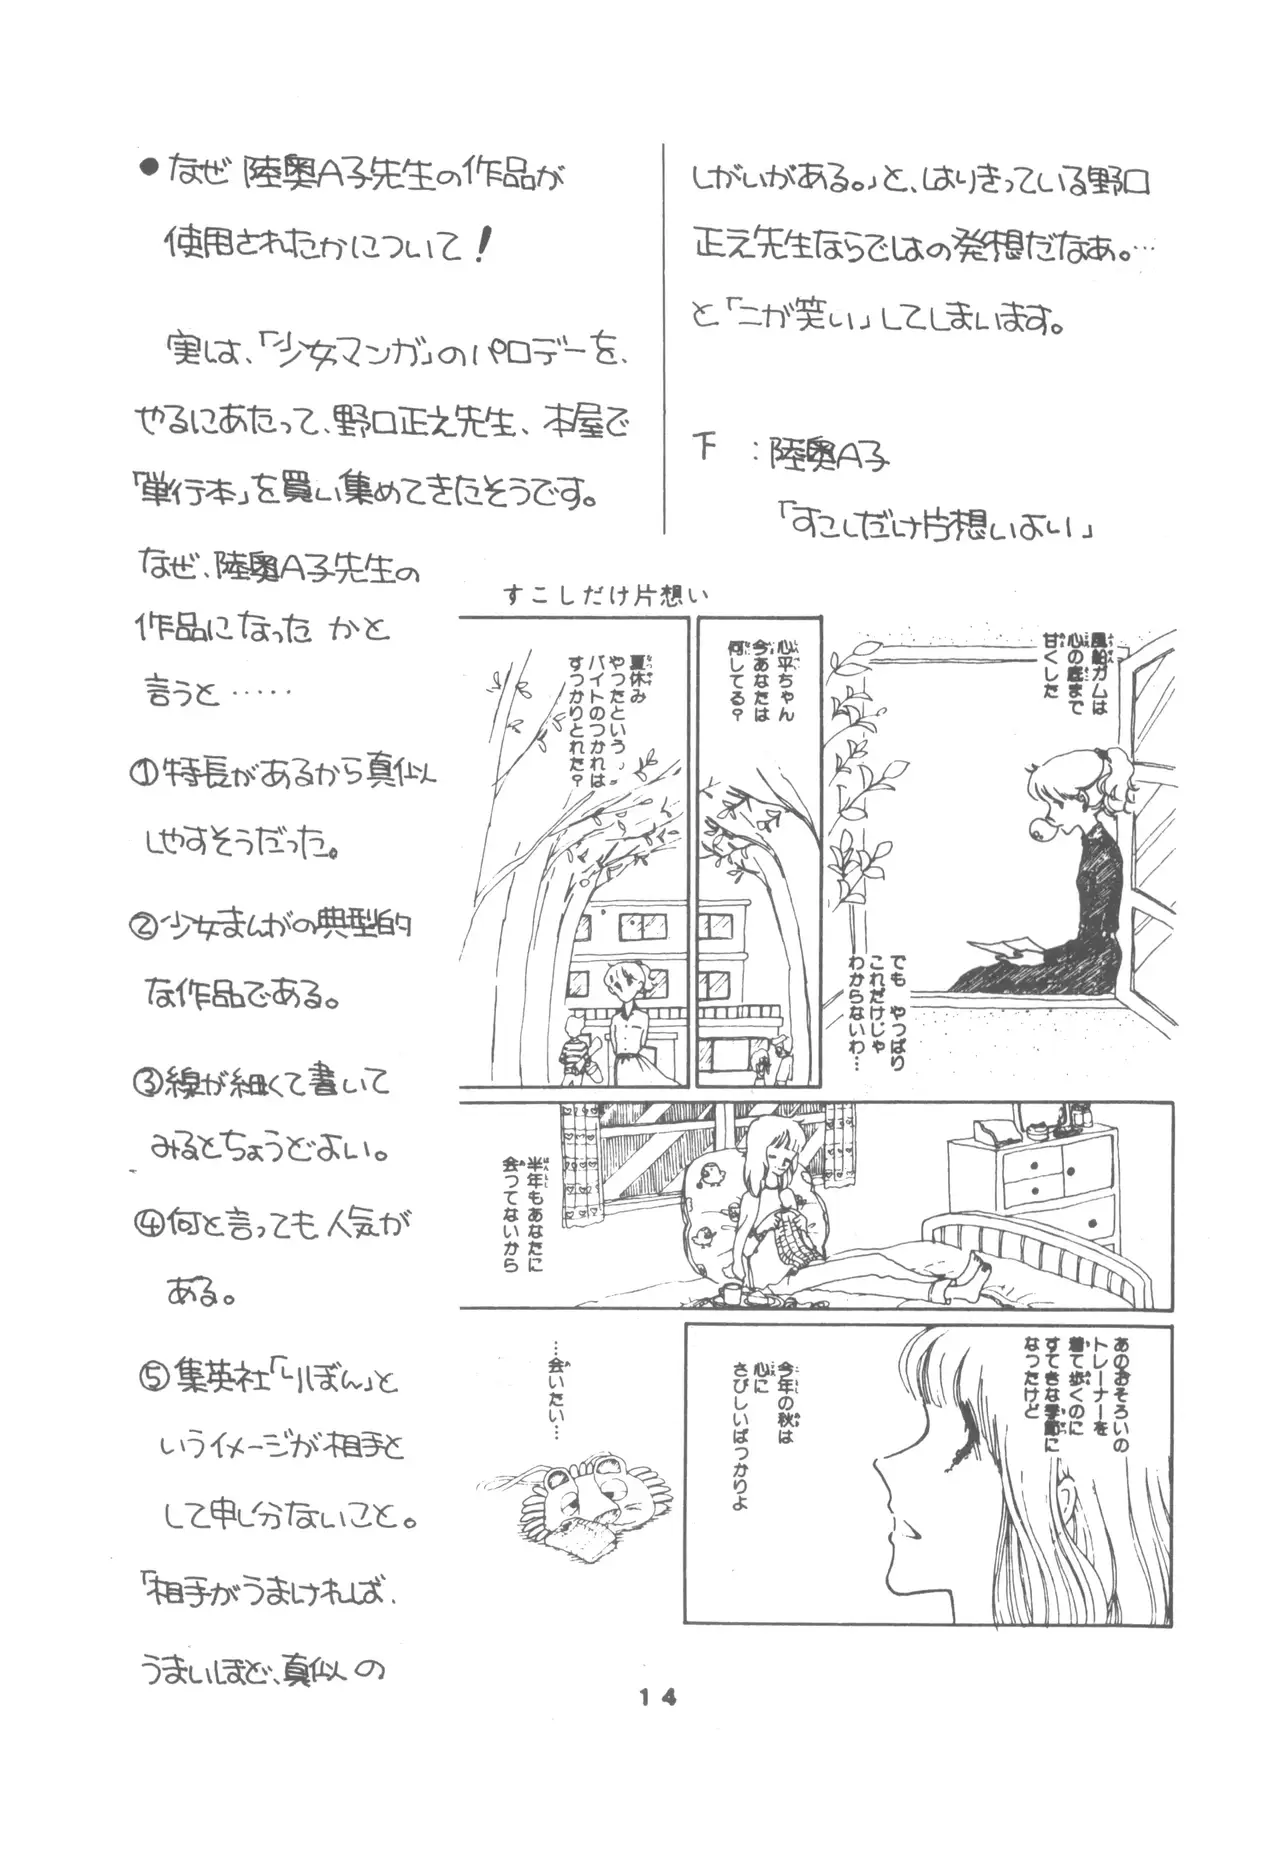 ●なぜ 陸奥A子先生の作品が
使用されたかについて!
実は、「少女マンガ」のパロデーを、
やるにあたって、野口正之先生、本屋で
「単行本」を買い集めてきたそうです。
なぜ、陸奥A子先生の
作品になった かと
言うと‥‥‥
①特長があるから真似
しやすそうだった。
②少女まんがの典型的
な作品である。
③線が細くて書いて
みるとちょうどよい。
④何と言っても人気が
ある。
⑤集英社「りぼん」と
いうイメージが相手と
して申し分ないこと。
「相手がうまければ、
うまいほど、真似の
しがいがある。」と、はりきっている野口
正之先生ならではの発想だなあ。…
と「ニガ笑い」してしまいます。
下 :陸奥A子
「すこしだけ片想いよい」
すこしだけ片想い
風船ガムは
心の底まで
甘くした
でも やっぱり
これだけじゃ
わからないわ…
心平ちゃん
今あなたは
何してる?
夏休み
やったという
バイトのつかれは
すっかりとれた?
半年もあなたに
会ってないから
あのおそろいの
トレーナーを
着て歩くのに
すてきな季節に
なったけど
今年の秋は
心に
さびしいばっかりよ
…会いたい…
14